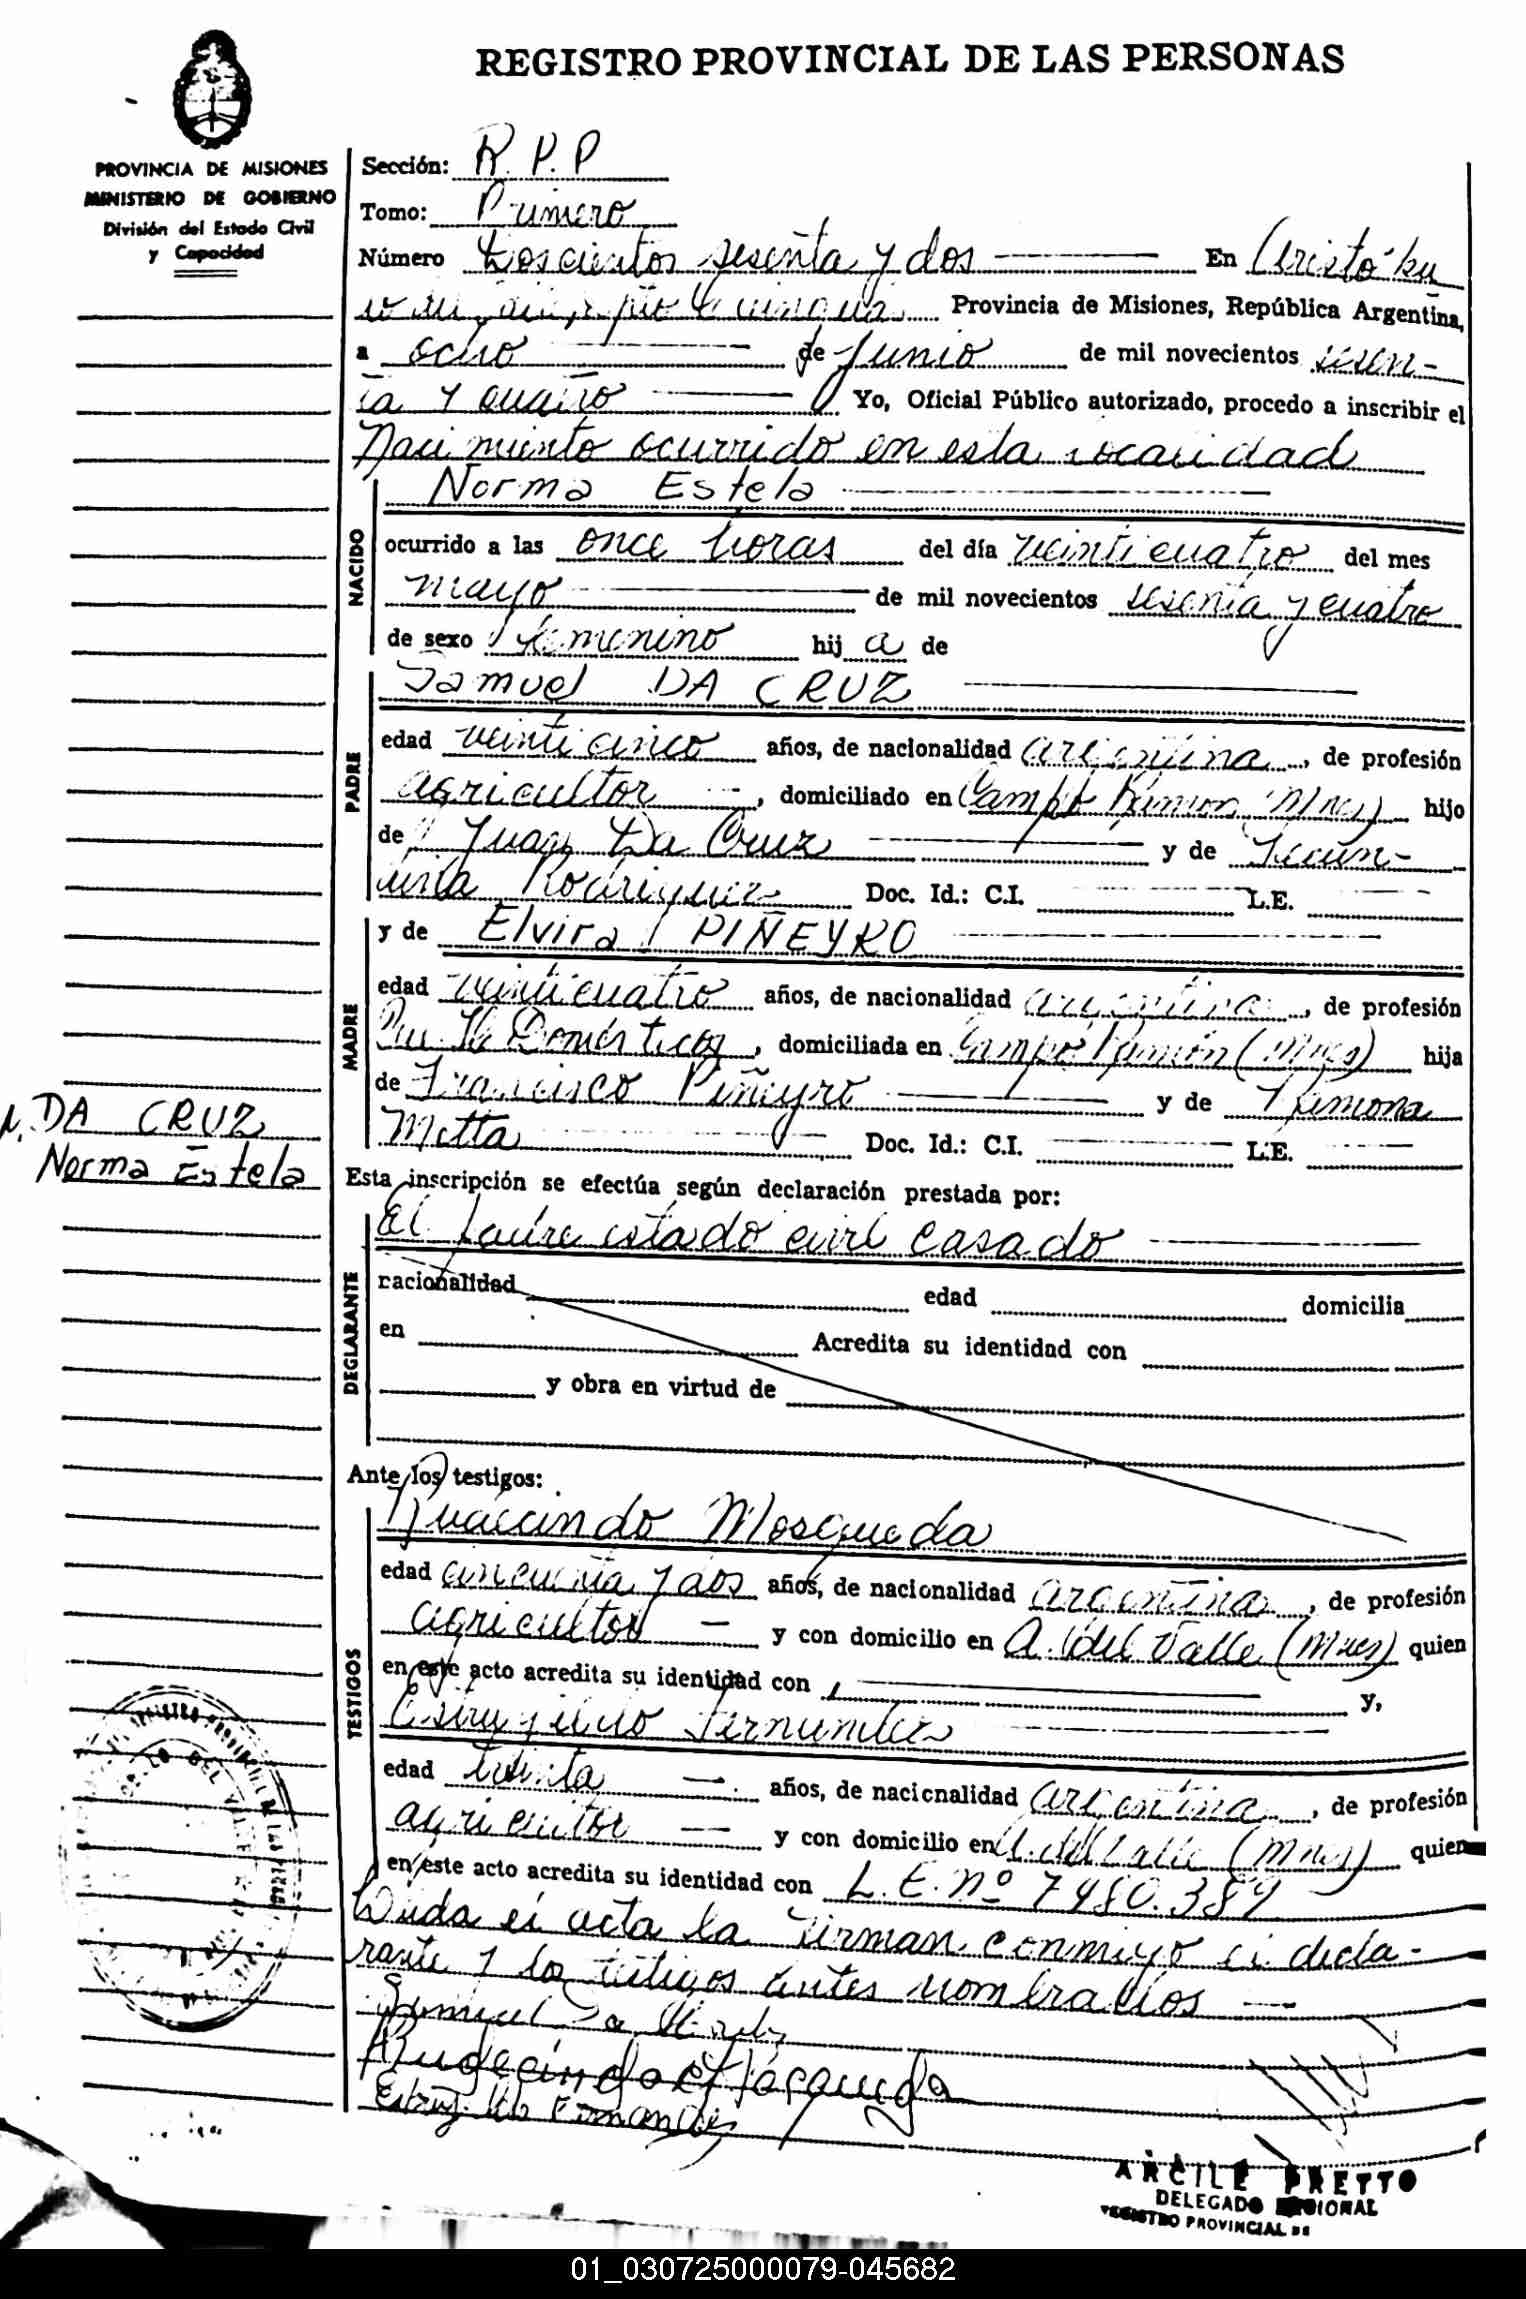 REGISTRO PROVINCIAL DE LAS PERSONAS
PROVINCIA DE MISIONES
MINISTERIO DE GOBIERNO
División del Estado Civil
y Capacidad
Sección: R.P.P
Tomo: Primero
Número Doscientos sesenta y dos En Aristó
Provincia de Misiones, República Argentina,
a ocho de junio de mil novecientos sesen-
ta y cuatro Yo, Oficial Público autorizado, procedo a inscribir el
Nacimiento ocurrido en esta localidad
NACIDO
Norma Estela
ocurrido a las once horas del día veinticuatro del mes
mayo de mil novecientos sesenta y cuatro
de sexo femenino hij a de
PADRE
Samuel DA CRUZ
edad veinticinco años, de nacionalidad argentina, de profesión
agricultor, domiciliado en Campo Ramon (Mnes) hijo
de Juan Da Cruz y de
Rodriguez Doc. Id.: C.I. L.E.
MADRE
y de Elvira PIÑEYRO
edad veinticuatro años, de nacionalidad argentina, de profesión
Domésticos, domiciliada en Campo Ramón (Mnes) hija
de Francisco Piñeyro y de Ramona
Motta Doc. Id.: C.I. L.E.
DA CRUZ
Norma Estela
Esta inscripción se efectúa según declaración prestada por:
DEGLARANTE
El padre estado civil casado
nacionalidad edad domicilia
en Acredita su identidad con
y obra en virtud de
Ante los testigos:
TESTIGOS
Mosqueda
edad cincuenta y dos años, de nacionalidad argentina, de profesión
agricultor y con domicilio en A. del Valle (Mnes) quien
en este acto acredita su identidad con y,
Fernandez
edad treinta años, de nacionalidad argentina, de profesión
agricultor y con domicilio en A. del Valle (Mnes) quien
en este acto acredita su identidad con L.E. nº 7480.389
acta la firman conmigo el decla-
rante y los testigos antes nombrados
Samuel Da Cruz
Rudecindo Mosqueda
Fernandez
ARCILE PRETTO
DELEGADO REGIONAL
REGISTRO PROVINCIAL DE
01_030725000079-045682